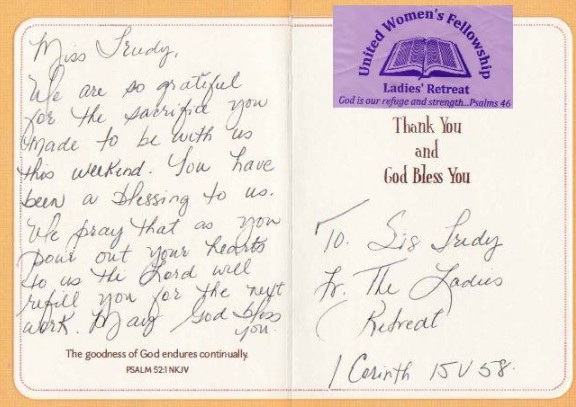 Miss Trudy,
We are so grateful
for the sacrifice you
made to be with us
this weekend. You have
been a blessing to us.
We pray that as you
pour out your hearts
to us the Lord will
refill you for the next
work. May God bless
you.
The goodness of God endures continually.
PSALM 52:1 NKJV
United Women's Fellowship
Ladies' Retreat
God is our refuge and strength...Psalms 46
Thank You
and
God Bless You
To. Sis Trudy
Fr. The Ladies
Retreat
1 Corinth 15 V 58.